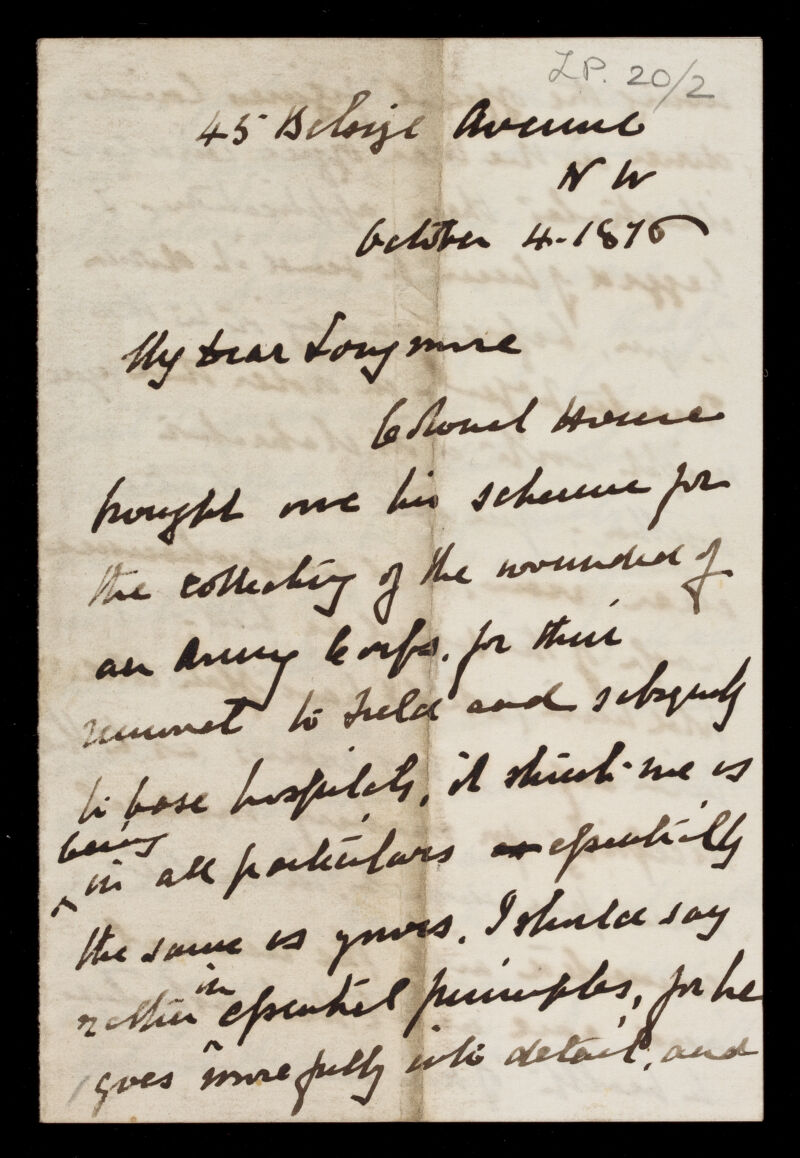 L.P. 20/2
45 Belsize Avenue
N W
October 4. 1876
My dear Longmore
Colonel Home
brought me his scheme for
the collecting of the wounded of
an Army Corps, for their
removal to Field and subsequently
to base hospitals, it struck me as
being
in all particulars essentially
the same as yours. I should say
rather in essential principles, for he
goes more fully into detail, and